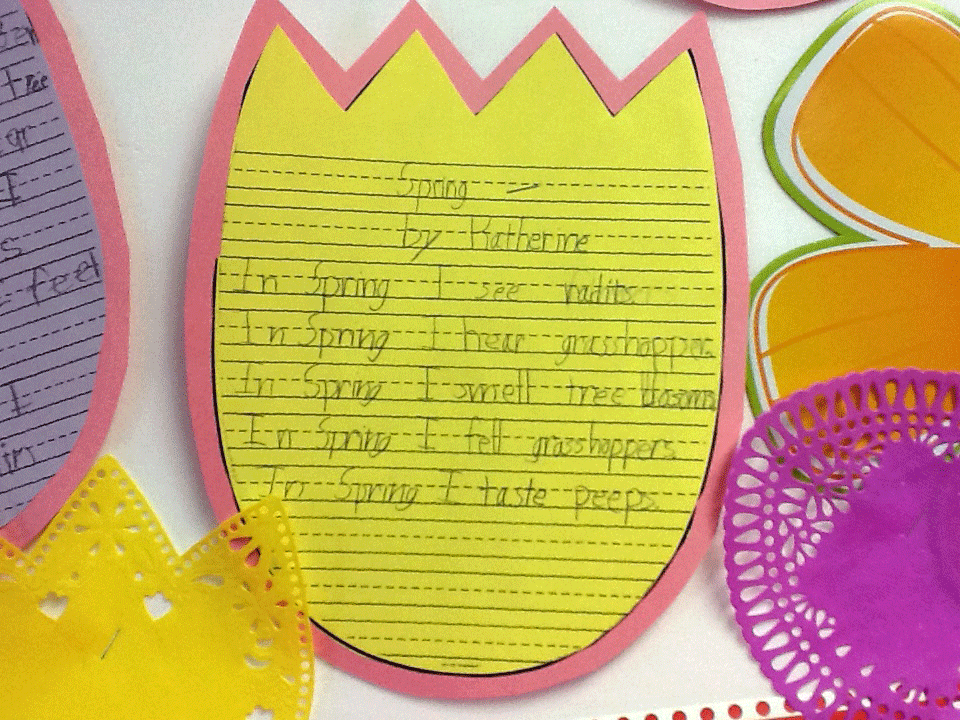 Spring
by Katherine
In Spring I see
In Spring I hear grasshoppers
In Spring I smell tree
In Spring I fell grasshoppers.
In Spring I taste peeps.
I
feel
I